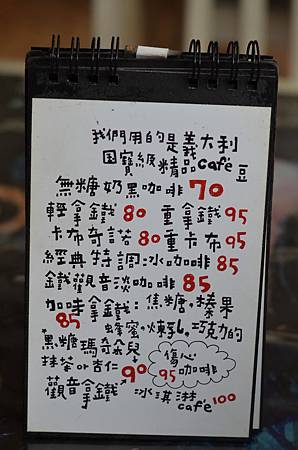 我們用的是義大利
国寶級精品café豆
無糖奶黑咖啡 70
輕拿鐵 80 重拿鐵 95
卡布奇諾 80 重卡布 95
經典特調冰咖啡 85
鐵觀音淡咖啡 85
加味拿鐵：焦糖，榛果
85 蜂蜜，煉乳，巧克力的
黑糖瑪奇朵兒
抹茶叶杏仁 90
傷心
95 咖啡
觀音拿鐵
冰淇淋
café 100